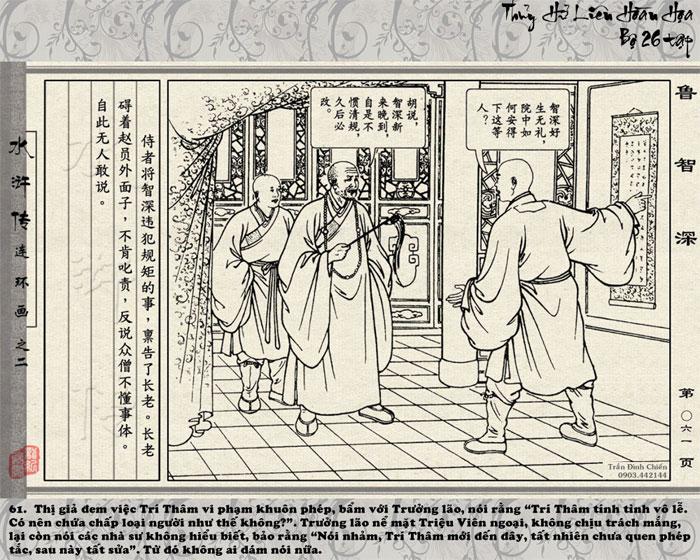 Thủy Hử Liên Hoàn Họa
Bộ 26 tập
鲁智深
第〇六一页
智深好
生无礼，
院中如
何安得
下这等
人？
胡说，
智深新
来晚到，
自是不
惯清规，
久后必
改。
侍者将智深违犯规矩的事，禀告了长老。长老
碍着赵员外面子，不肯叱责，反说众僧不懂事体。
自此无人敢说。
水浒传连环画之二
Trần Đình Chiến
0903.442144
61. Thị giả đem việc Trí Thâm vi phạm khuôn phép, bẩm với Trưởng lão, nói rằng “Trí Thâm tính tình vô lễ.
Có nên chứa chấp loại người như thế không?”. Trưởng lão nể mặt Triệu Viên ngoại, không chịu trách mắng,
lại còn nói các nhà sư không hiểu biết, bảo rằng “Nói nhảm, Trí Thâm mới đến đây, tất nhiên chưa quen phép
tắc, sau này tất sửa”. Từ đó không ai dám nói nữa.